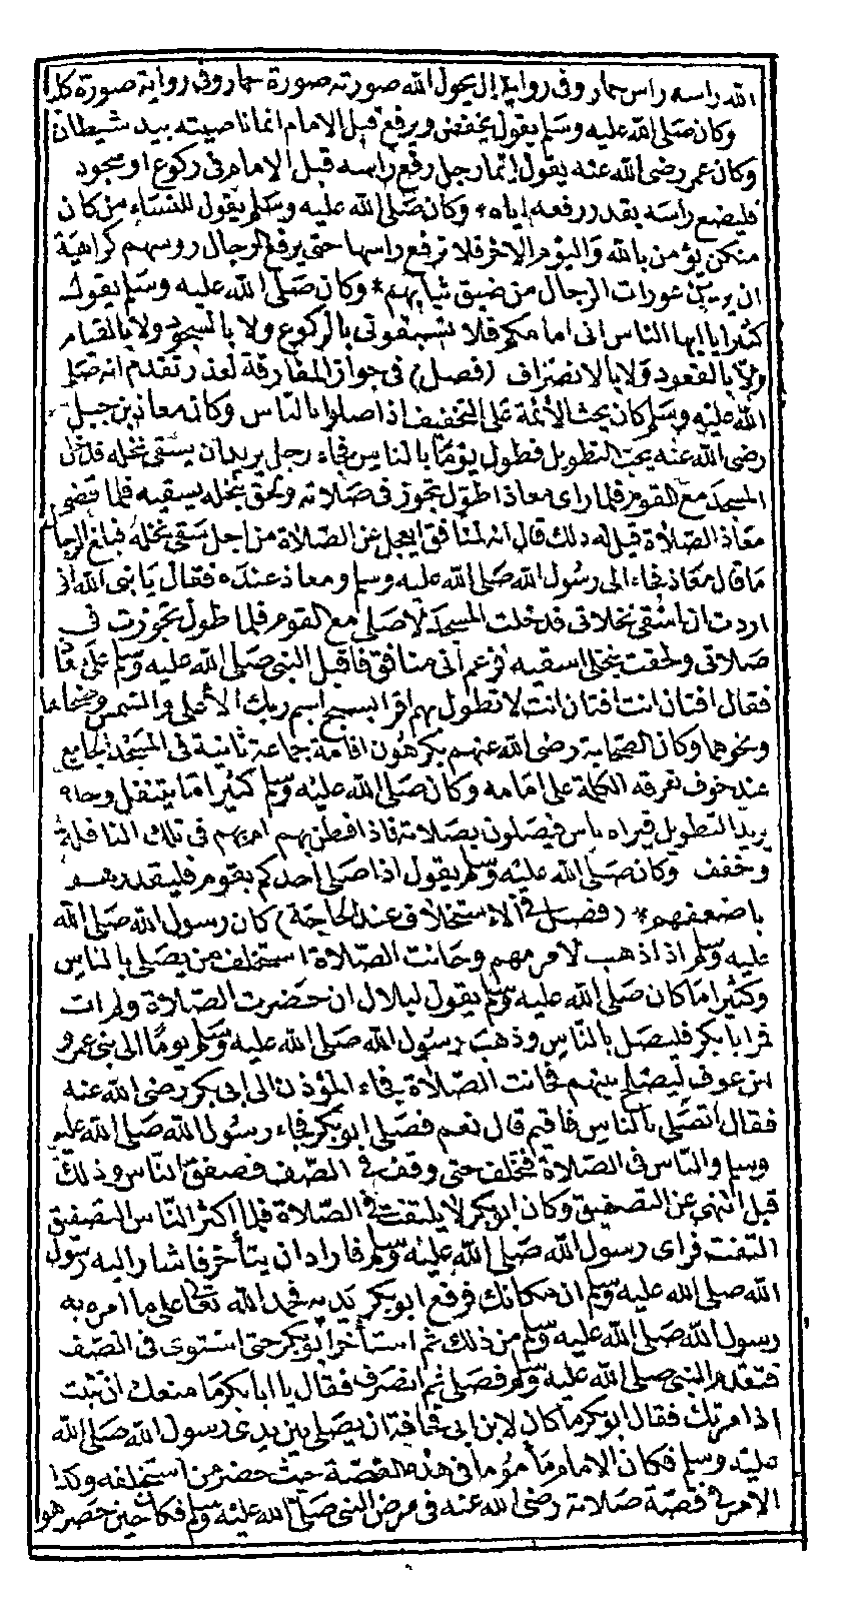 الله راسه راس حمار وفى رواية ان يحول الله صورته صورة حمار وفى رواية صورة كلب
وكان صلى الله عليه وسلم يقول يخفض ويرفع قبل الامام انما ناصيته بيد شيطان
وكان عمر رضى الله عنه يقول انما رجل رفع راسه قبل الامام فى ركوع او سجود
فليضع راسه بقدر رفعه اياه * وكان صلى الله عليه وسلم يقول للنساء من كان
منكن يؤمن بالله واليوم الاخر فلا ترفع راسها حتى يرفع الرجال روسهم كراهية
ان يرين عورات الرجال من ضيق ثيابهم * وكان صلى الله عليه وسلم يقول
كثيرا ياايها الناس انى امامكم فلا تسبقونى بالركوع ولا بالسجود ولا بالقيام
ولا بالقعود ولا بالانصراف (فصل) فى جواز المفارقة لعذر تقدم انه صلى
الله عليه وسلم كان يحث الائمة على التخفيف اذا صلوا بالناس وكان معاذ بن جبل
رضى الله عنه يحب التطويل فطول يوما بالناس فجاء رجل يريد ان يسقى نخله فدخل
المسجد مع القوم فلما راى معاذا طول تجوز فى صلاته ولحق بنخله يسقيه فلما قضى
معاذ الصلاة قيل له ذلك قال انه لمنافق ايعجل عن الصلاة من اجل سقى نخله فبلغ الرجل
ما قال معاذ فجاء الى رسول الله صلى الله عليه وسلم ومعاذ عنده فقال يا نبى الله انى
اردت ان اسقى نخلا لى فدخلت المسجد لاصلى مع القوم فلما طول تجوزت فى
صلاتى ولحقت بنخلى اسقيه فزعم أنى منافق فاقبل النبى صلى الله عليه وسلم على معاذ
فقال افتان انت افتان انت لا تطول بهم اقرا بسبح اسم ربك الأعلى والشمس وضحاها
ونحوهما وكان الصحابة رضى الله عنهم يكرهون اقامة جماعة ثانية فى المسجد الجامع
عند خوف تفرقه الكلمة على امامه وكان صلى الله عليه وسلم كثيرا ما يتنفل وحده
يريد التطويل فيراه ناس فيصلون بصلاته فاذا فطن بهم امهم فى تلك النافلة
وخفف وكان صلى الله عليه وسلم يقول اذا صلى احدكم بقوم فليقدرهم
باضعفهم * (فصل فى الاستخلاف عند الحاجة) كان رسول الله صلى الله
عليه وسلم اذا ذهب لامر مهم وحانت الصلاة استخلف من يصلى بالناس
وكثيرا ما كان صلى الله عليه وسلم يقول لبلال ان حضرت الصلاة ولم ات
فمر ابا بكر فليصل بالناس وذهب رسول الله صلى الله عليه وسلم يوما الى بنى عمرو
ابن عوف ليصلح بينهم فحانت الصلاة فجاء المؤذن الى ابى بكر رضى الله عنه
فقال اتصلى بالناس فاقيم قال نعم فصلى ابو بكر فجاء رسول الله صلى الله عليه
وسلم والناس فى الصلاة فتخلف حتى وقف فى الصف فصفق الناس وذلك
قبل النهى عن التصفيق وكان ابو بكر لا يلتفت فى الصلاة فلما اكثر الناس التصفيق
التفت فراى رسول الله صلى الله عليه وسلم فاراد ان يتأخر فاشار اليه رسول
الله صلى الله عليه وسلم ان مكانك فرفع ابو بكر يديه فحمد الله تعالى على ما امره به
رسول الله صلى الله عليه وسلم من ذلك ثم استأخر أبو بكر حتى استوى فى الصف
فتقدم النبى صلى الله عليه وسلم فصلى ثم انصرف فقال يا ابا بكر ما منعك ان تثبت
اذ امرتك فقال ابو بكر ما كان لابن ابى قحافة ان يصلى بين يدى رسول الله صلى الله
عليه وسلم فكان الامام مأموما فى هذه القصة حيث حضر من استخلفه وكذا
الامر فى قصة صلاته رضى الله عنه فى مرض النبى صلى الله عليه وسلم فكان حين حضر هو